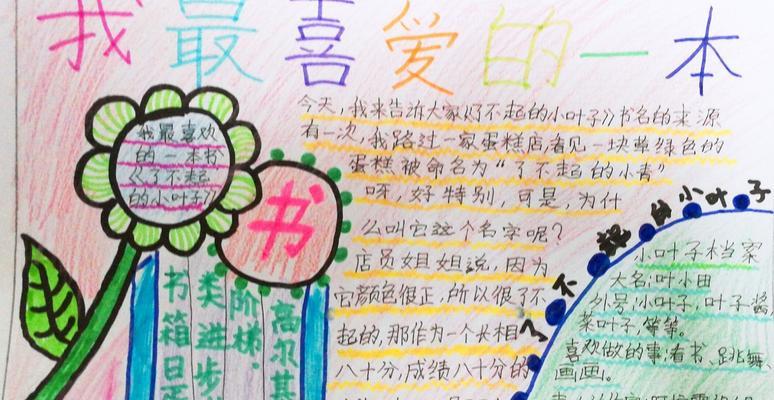 我最喜爱的一本
我最喜欢
的一本书
《了不起
的小叶子》
书
今天,我来告诉大家《了不起的小叶子》书名的来源
有一次,我路过一家蛋糕店看见一块草绿色的
蛋糕被命名为“了不起的小青”
呀,好特别,可是,为什
么叫它这个名字呢?
店员姐姐说,因为
它颜色很正,所以很了不
起的,那作为一个长相
八十分,成绩八十分的
书籍是
类进步
阶梯.
高尔基
了不起的小叶子
小叶子档案
大名:叶小田
外号:小叶子,叶子酱
菜叶子,等等。
喜欢做的事:看书、跳舞、
画画。